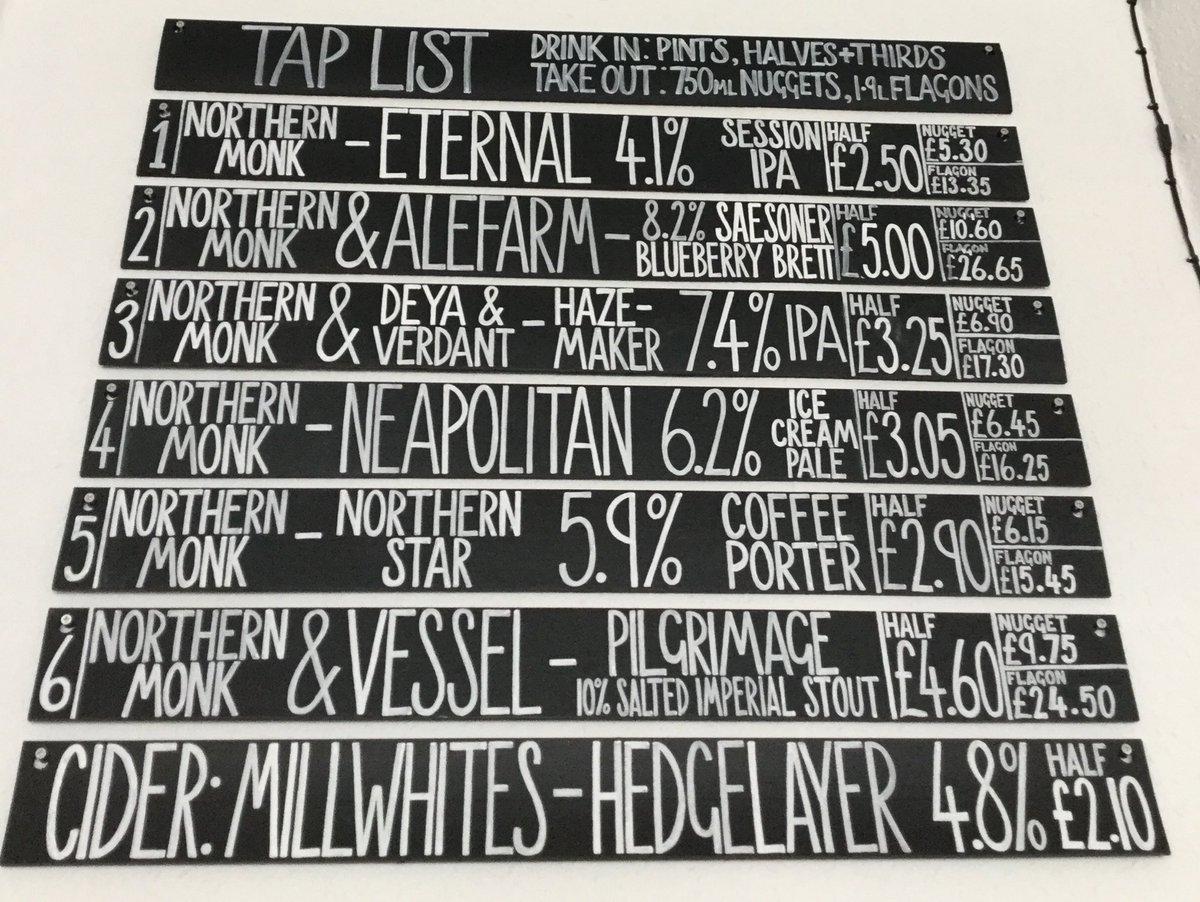 TAP LIST DRINK IN: PINTS, HALVES+THIRDS
TAKE OUT: 750ML NUGGETS, 1.9L FLAGONS
1 NORTHERN MONK - ETERNAL 4.1% SESSION IPA HALF £2.50 NUGGET £5.30 FLAGON £13.35
2 NORTHERN MONK & ALEFARM - 8.2% SAESONER BLUEBERRY BRETT HALF £5.00 NUGGET £10.60 FLAGON £26.65
3 NORTHERN MONK & DEYA & VERDANT - HAZE-MAKER 7.4% IPA HALF £3.25 NUGGET £6.90 FLAGON £17.30
4 NORTHERN MONK - NEAPOLITAN 6.2% ICE CREAM PALE HALF £3.05 NUGGET £6.45 FLAGON £16.25
5 NORTHERN MONK - NORTHERN STAR 5.9% COFFEE PORTER HALF £2.90 NUGGET £6.15 FLAGON £15.45
6 NORTHERN MONK & VESSEL - PILGRIMAGE 10% SALTED IMPERIAL STOUT HALF £4.60 NUGGET £9.75 FLAGON £24.50
CIDER: MILLWHITES - HEDGELAYER 4.8% HALF £2.10